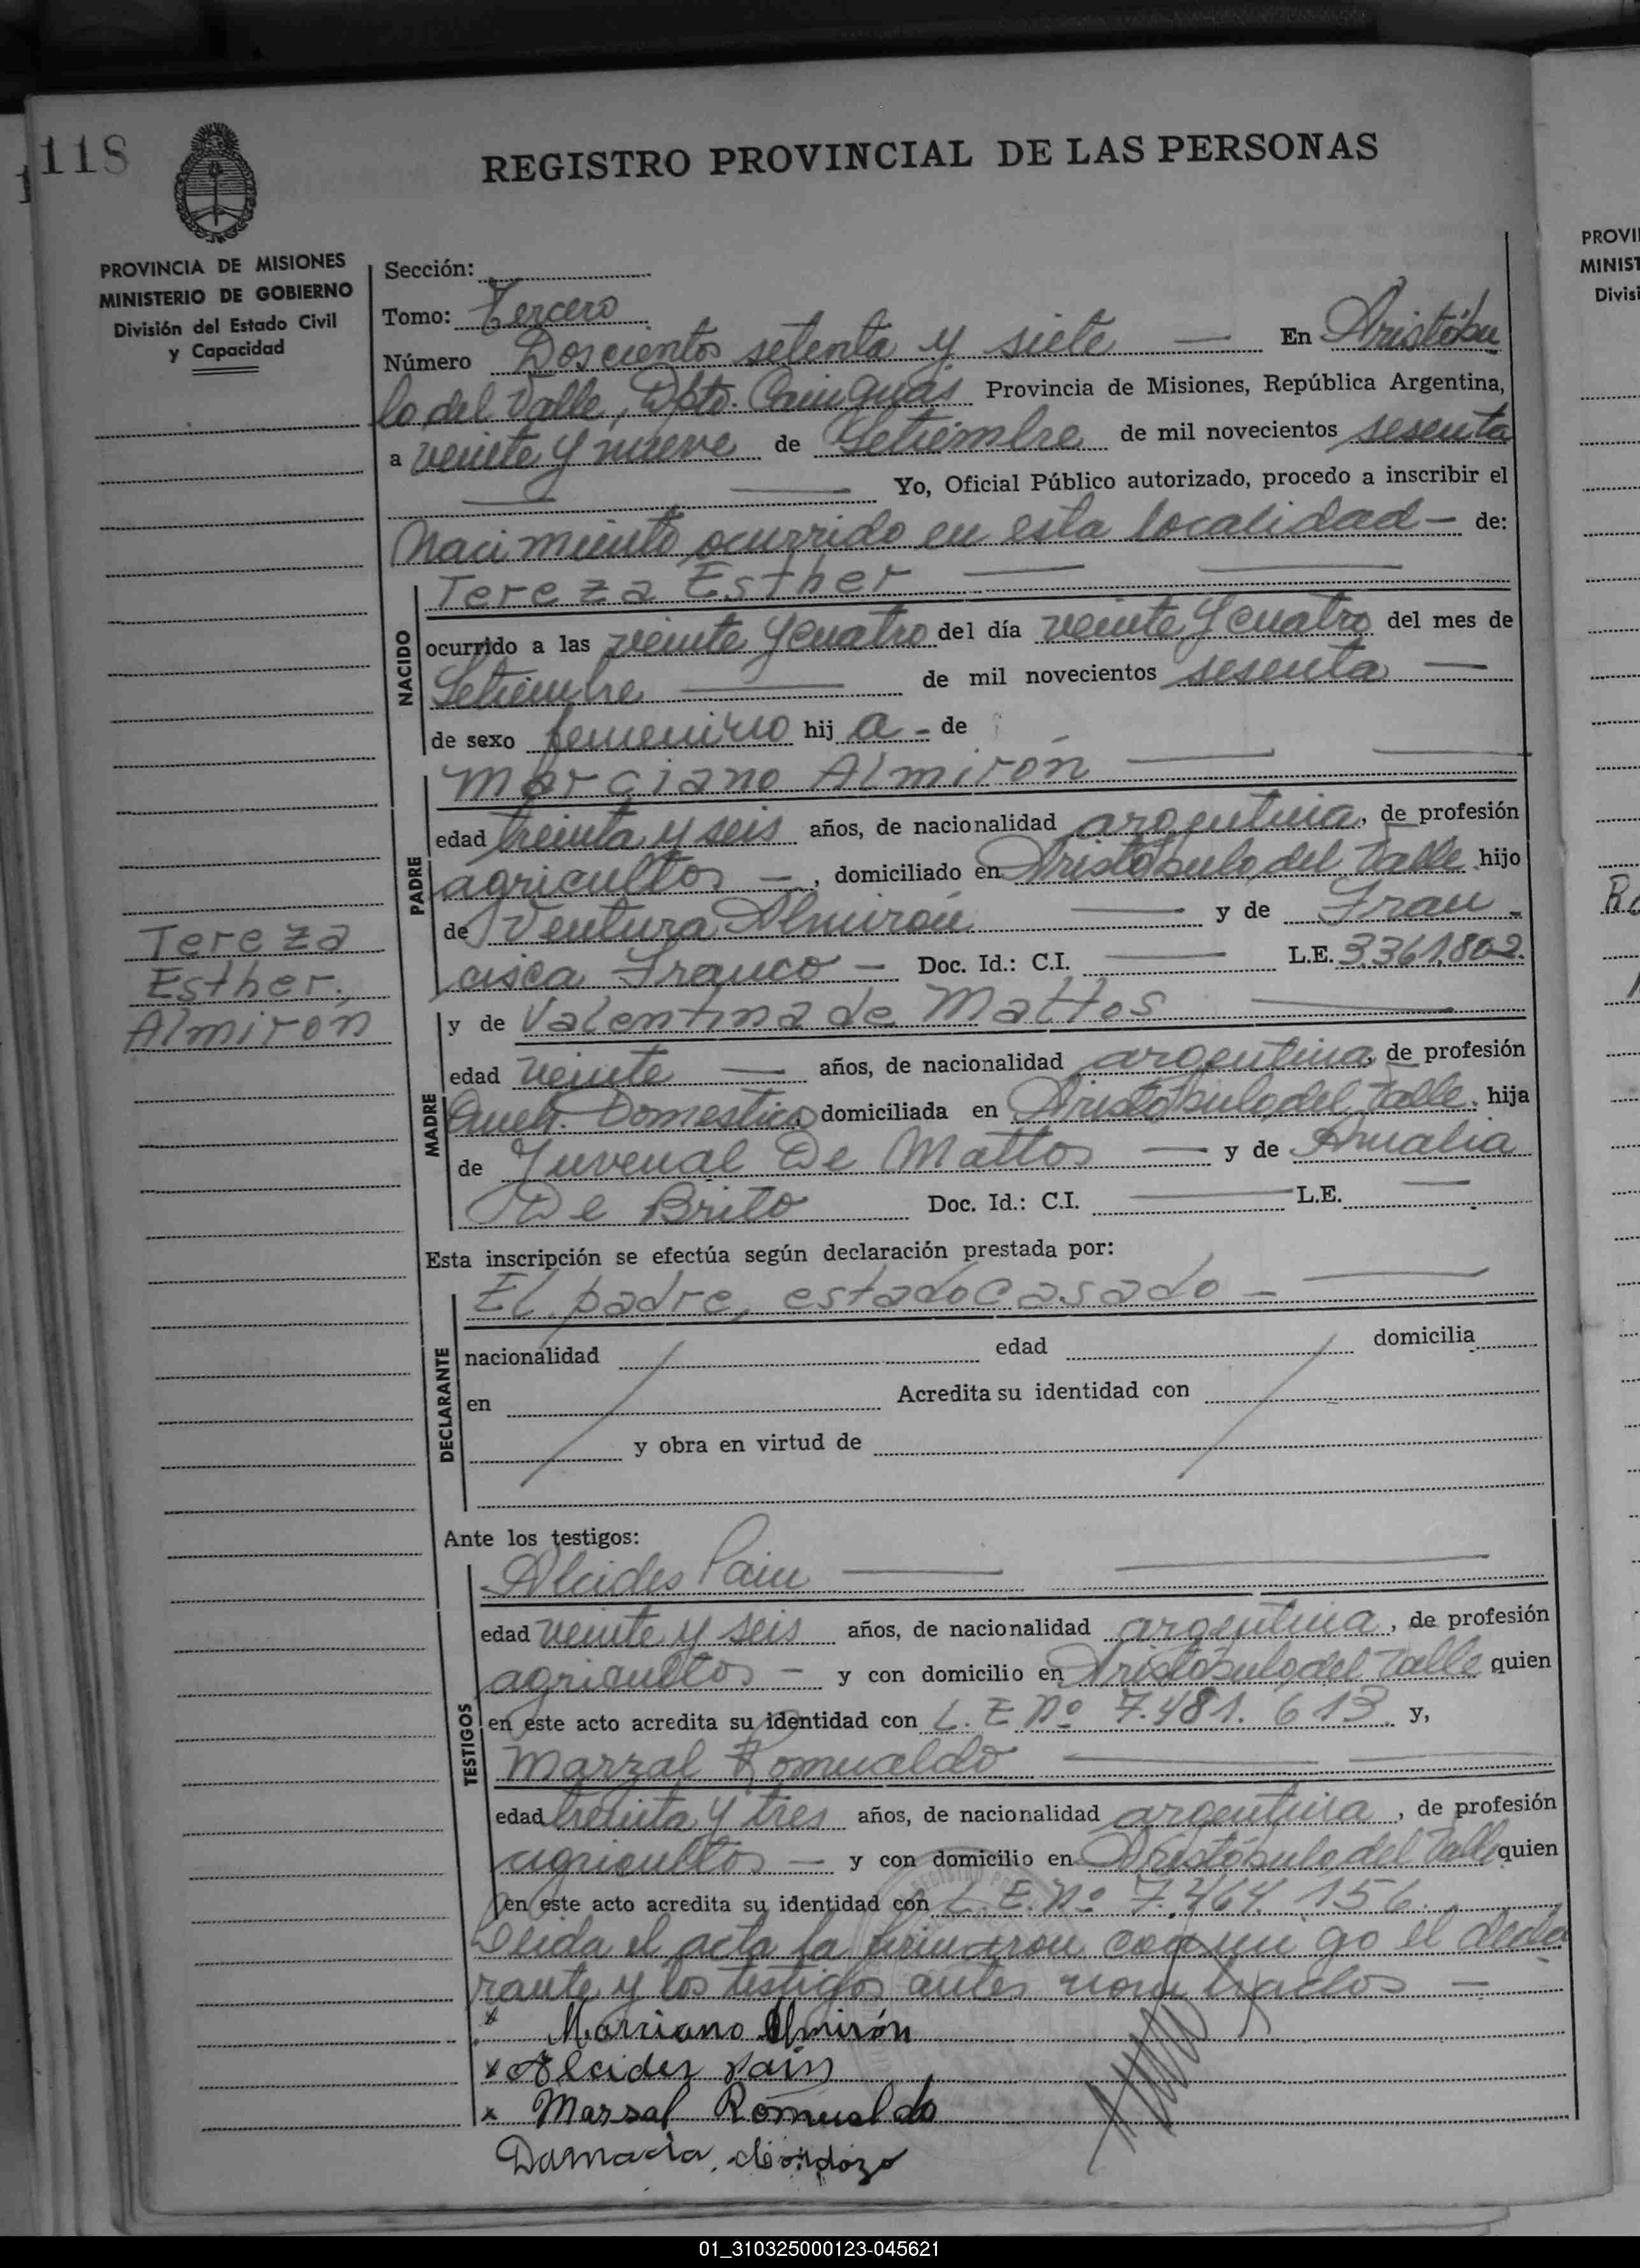 118
REGISTRO PROVINCIAL DE LAS PERSONAS
PROVINCIA DE MISIONES
MINISTERIO DE GOBIERNO
División del Estado Civil
y Capacidad
Sección:
Tomo: Tercero
Número Doscientos setenta y siete — En Aristóbu
lo del Valle, Dpto. Cainguás Provincia de Misiones, República Argentina,
a veinte y nueve de Setiembre de mil novecientos sesenta
— — Yo, Oficial Público autorizado, procedo a inscribir el
Nacimiento ocurrido en esta localidad — de:
NACIDO
Tereza Esther — —
ocurrido a las veinte y cuatro del día veinte y cuatro del mes de
Setiembre — de mil novecientos sesenta —
de sexo femenino hij a - de
PADRE
Marciano Almirón — —
edad treinta y seis años, de nacionalidad argentina, de profesión
agricultor —, domiciliado en Aristóbulo del Valle hijo
de Ventura Almirón — y de Fran-
cisca Franco — Doc. Id.: C.I. — L.E. 3.361.802.
Tereza
Esther.
Almirón
MADRE
y de Valentina de Mattos —
edad veinte — años, de nacionalidad argentina, de profesión
Queh. Domestico domiciliada en Aristóbulo del Valle. hija
de Juvenal De Mattos — y de Amalia
De Brito Doc. Id.: C.I. — L.E. —
Esta inscripción se efectúa según declaración prestada por:
DECLARANTE
El padre, estado casado — —
nacionalidad edad domicilia
en Acredita su identidad con
y obra en virtud de
Ante los testigos:
TESTIGOS
Alcides Pain — —
edad veinte y seis años, de nacionalidad argentina, de profesión
agricultor — y con domicilio en Aristóbulo del Valle quien
en este acto acredita su identidad con L. E. Nº 7.481.613. y,
Marzal Romualdo — —
edad treinta y tres años, de nacionalidad argentina, de profesión
agricultor — y con domicilio en Aristóbulo del Valle quien
en este acto acredita su identidad con L. E. Nº 7.464.156.
Leida el acta la firmaron conmigo el decla
rante y los testigos antes nombrados —
x Marciano Almirón
x Alcides Pain
x Marsal Romualdo
PROVI
MINIST
Divisi
01_310325000123-045621